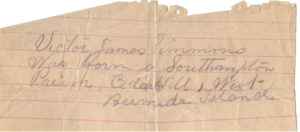 Victor James Simmons
Was born in Southampton
Parish, Cedar Hill, West
Bermuda Island